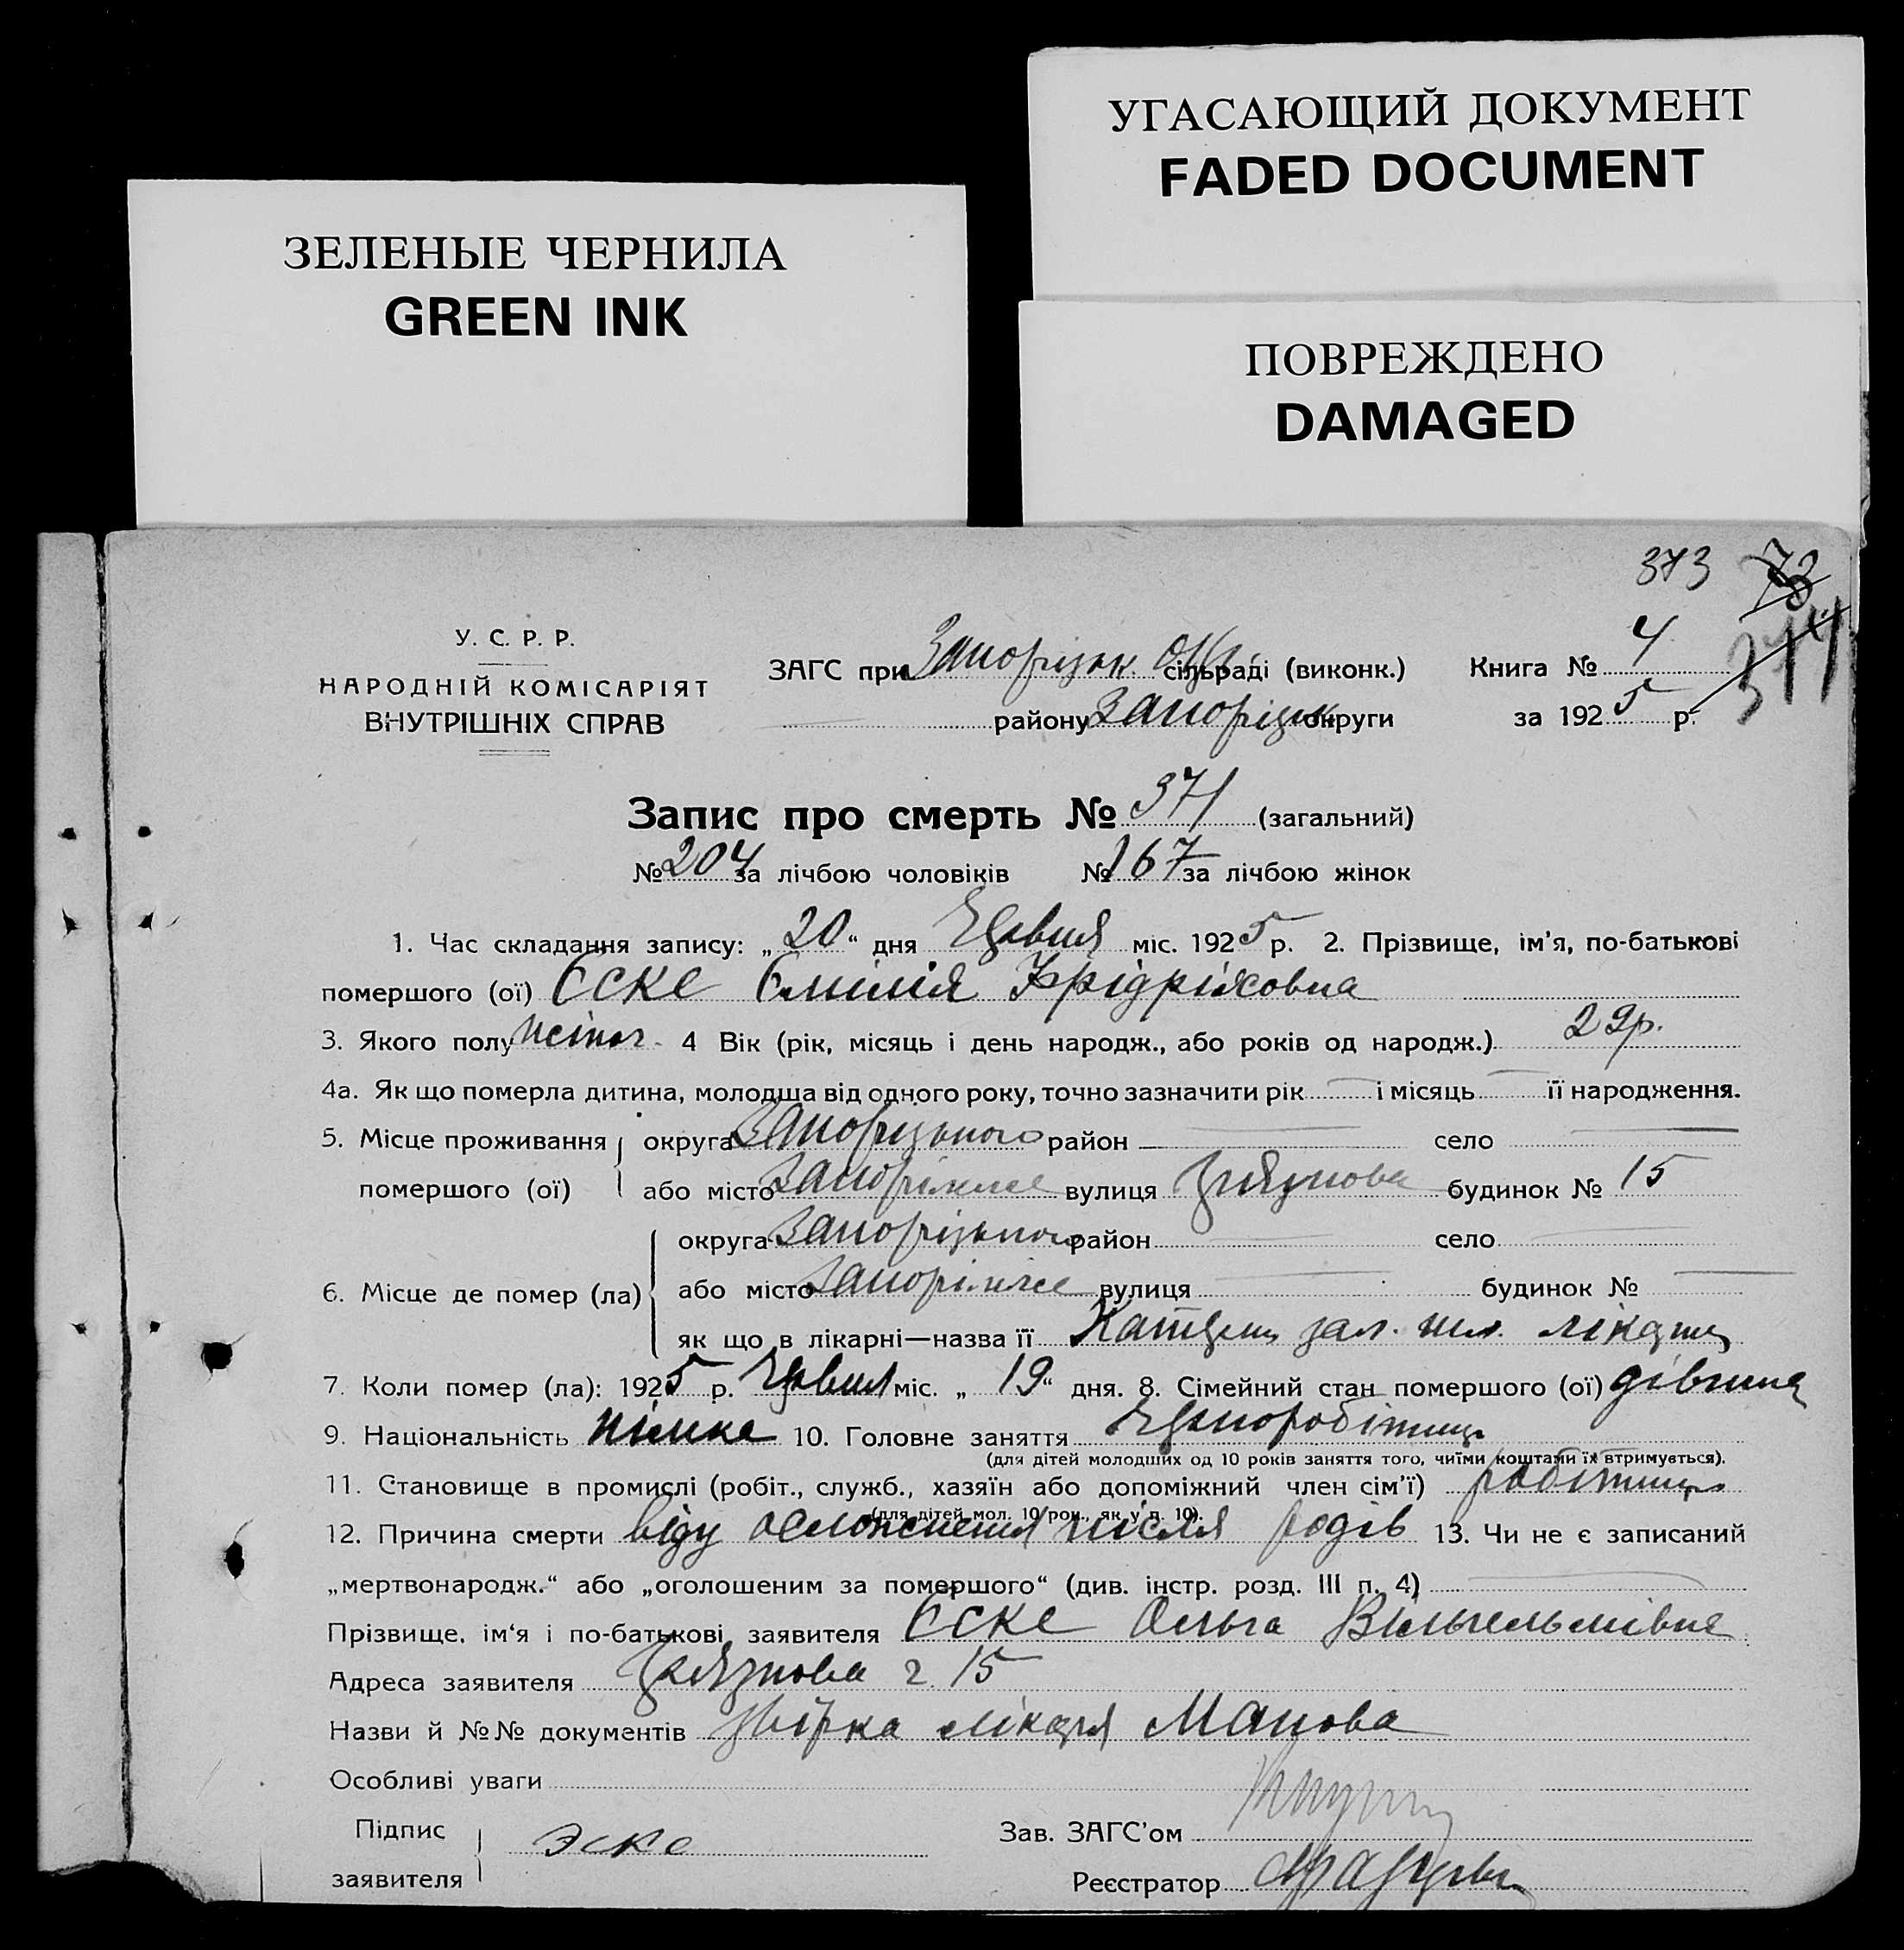 УГАСАЮЩИЙ ДОКУМЕНТ
FADED DOCUMENT
ЗЕЛЕНЫЕ ЧЕРНИЛА
GREEN INK
ПОВРЕЖДЕНО
DAMAGED
373 73
У. С. Р. Р.
НАРОДНІЙ КОМІСАРІЯТ
ВНУТРІШНІХ СПРАВ
ЗАГС при Запорізьк. сільраді (виконк.) Книга № 4
району Запорізьк округи за 1925 р.
Запис про смерть № 371 (загальний)
№ 204 за лічбою чоловіків № 167 за лічбою жінок
1. Час складання запису: „20“ дня Червня міс. 1925 р. 2. Прізвище, ім'я, по-батькові
помершого (ої) Єске Емілія Фрідріховна
3. Якого полу жіноч. 4 Вік (рік, місяць і день народж., або років од народж.) 29р.
4а. Як що померла дитина, молодша від одного року, точно зазначити рік і місяць її народження.
5. Місце проживання округа Запорізького район село
помершого (ої) або місто Запоріжжє вулиця Грязнова будинок № 15
округа Запорізького район село
6. Місце де помер (ла) або місто Запоріжжє вулиця будинок №
як що в лікарні—назва її Катерин. зал. лікарня
7. Коли помер (ла): 1925 р. Червня міс. „19“ дня. 8. Сімейний стан помершого (ої) дівчина
9. Національність німка 10. Головне заняття Чорноробітниця
(для дітей молодших од 10 років заняття того, чиїми коштами їх втримується).
11. Становище в промислі (робіт., служб., хазяїн або допоміжний член сім'ї) робітниця
(для дітей мол. 10 рок., як у п. 10).
12. Причина смерти віду осложнення після родів 13. Чи не є записаний
„мертвонародж.“ або „оголошеним за помершого“ (див. інстр. розд. III п. 4)
Прізвище, ім'я і по-батькові заявителя Єске Ольга Вільгельмівна
Адреса заявителя Грязнова 2. 15
Назви й №№ документів лікаря Манова
Особливі уваги
Підпис Эске Зав. ЗАГС'ом
заявителя Реєстратор